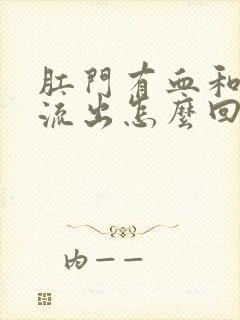 肛門有血和
流出怎麼回
内——